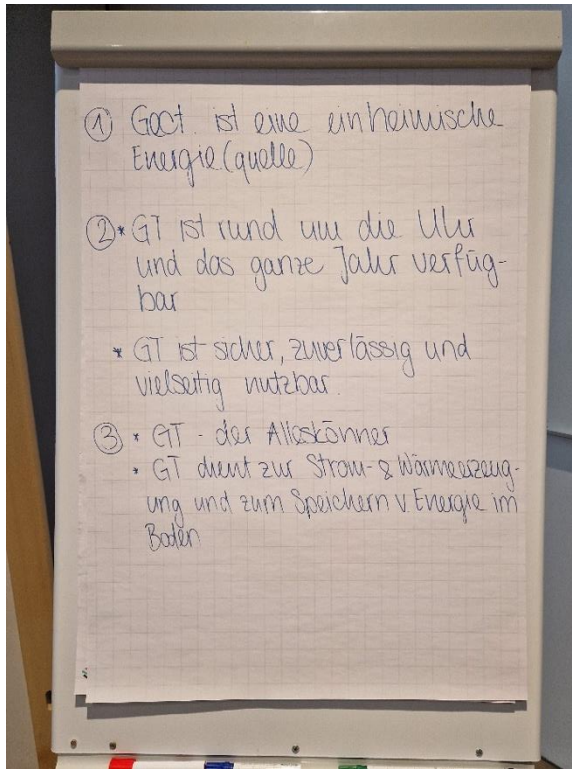 ① Geot. ist eine einheimische
Energie(quelle)
② * GT ist rund um die Uhr
und das ganze Jahr verfüg-
bar
* GT ist sicher, zuverlässig und
vielseitig nutzbar.
③ * GT - der Alleskönner
* GT dient zur Strom- & Wärmeerzeug-
ung und zum Speichern v. Energie im
Boden